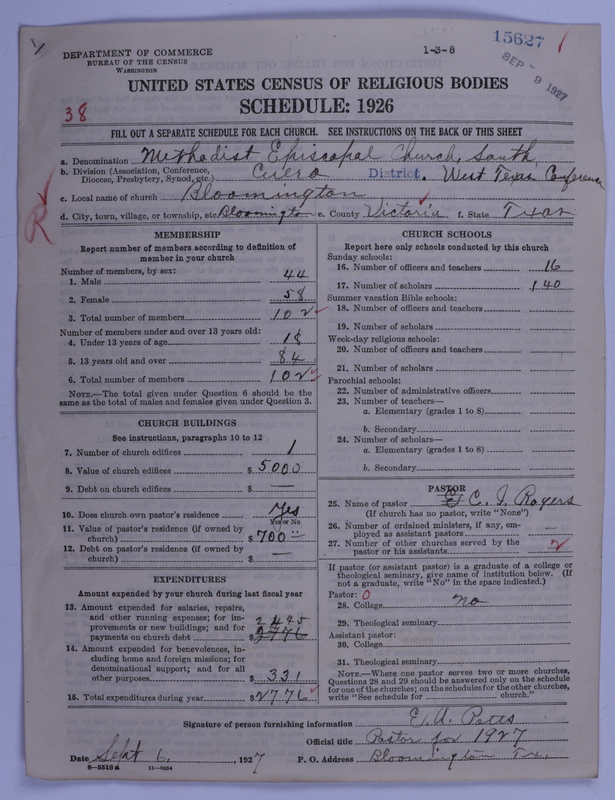 15627
SEP 9 1927
DEPARTMENT OF COMMERCE
BUREAU OF THE CENSUS
WASHINGTON
1-3-8
UNITED STATES CENSUS OF RELIGIOUS BODIES
SCHEDULE: 1926
38
FILL OUT A SEPARATE SCHEDULE FOR EACH CHURCH. SEE INSTRUCTIONS ON THE BACK OF THIS SHEET
a. Denomination Methodist Episcopal Church, South
b. Division (Association, Conference, Diocese, Presbytery, Synod, etc.) Cuero District. West Texas Conference
c. Local name of church Bloomington
d. City, town, village, or township, etc. Bloomington e. County Victoria f. State Texas
R
MEMBERSHIP
Report number of members according to definition of
member in your church
Number of members, by sex:
1. Male 44
2. Female 58
3. Total number of members 102
Number of members under and over 13 years old:
4. Under 13 years of age 18
5. 13 years old and over 84
6. Total number of members 102
NOTE.—The total given under Question 6 should be
same as the total of males and females given under Question 3.
CHURCH BUILDINGS
See instructions, paragraphs 10 to 12
7. Number of church edifices 1
8. Value of church edifices $ 5000
9. Debt on church edifices $ —
10. Does church own pastor's residence Yes
Yes or No
11. Value of pastor's residence (if owned by
church) $ 700
12. Debt on pastor's residence (if owned by
church) $ —
EXPENDITURES
Amount expended by your church during last fiscal year
13. Amount expended for salaries, repairs,
and other running expenses; for im-
provements or new buildings; and for 2445
payments on church debt $ 2776
14. Amount expended for benevolences, in-
cluding home and foreign missions; for
denominational support; and for all
other purposes $ 331
15. Total expenditures during year $ 2776
CHURCH SCHOOLS
Report here only schools conducted by this church
Sunday schools:
16. Number of officers and teachers 16
17. Number of scholars 140
Summer vacation Bible schools:
18. Number of officers and teachers
19. Number of scholars
Week-day religious schools:
20. Number of officers and teachers
21. Number of scholars
Parochial schools:
22. Number of administrative officers
23. Number of teachers—
a. Elementary (grades 1 to 8)
b. Secondary
24. Number of scholars—
a. Elementary (grades 1 to 8)
b. Secondary
PASTOR
25. Name of pastor C. J. Rogers
(If church has no pastor, write "None")
26. Number of ordained ministers, if any, em-
ployed as assistant pastors —
27. Number of other churches served by the
pastor or his assistants 2
If pastor (or assistant pastor) is a graduate of a college or
theological seminary, give name of institution below. (If
not a graduate, write "No" in the space indicated.)
Pastor: 0
28. College no
29. Theological seminary
Assistant pastor:
30. College
31. Theological seminary
NOTE.—Where one pastor serves two or more churches,
Questions 28 and 29 should be answered only on the schedule
for one of the churches; on the schedules for the other churches,
write "See schedule for church."
Signature of person furnishing information E. A. Potts
Official title Pastor for 1927
Date Sept 6, 1927 P. O. Address Bloomington Tx.
8-5518a 11-9054